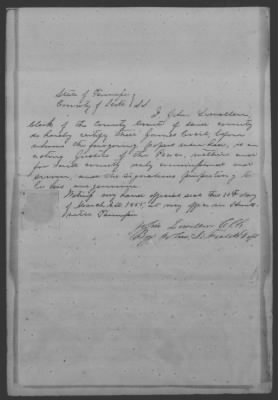 State of Tennessee
County of Scott SS.
I John Lewallen
clerk of the County Court of said county
do hereby certify that James Cecil, before
whom the foregoing papers was made, is an
acting Justice of the Peace, within and
for said county duly commissioned and
sworn, and the signature purporting to
be his are genuine
Witness my hand official seal this 10th day
of March AD 1885, at my office in Hunts-
ville Tennessee
John Lewallen Clk
By